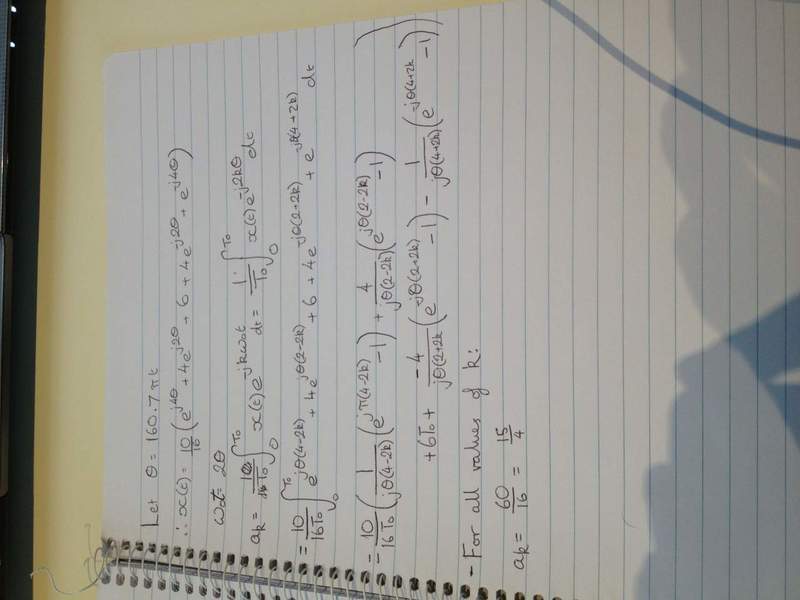 Let θ = 160.7πt
∴ x(t) = 10/16 (e^{j4θ} + 4e^{j2θ} + 6 + 4e^{-j2θ} + e^{-j4θ})
ω₀t = 2θ
a_k = 1/T₀ ∫₀^{T₀} x(t) e^{-jkω₀t} dt = 1/T₀ ∫₀^{T₀} x(t) e^{-j2kθ} dt
= 10/16T₀ ∫₀^{T₀} e^{jθ(4-2k)} + 4e^{jθ(2-2k)} + 6 + 4e^{-jθ(2+2k)} + e^{-jθ(4+2k)} dt
= 10/16T₀ (1/jθ(4-2k) (e^{jπ(4-2k)} - 1) + 4/jθ(2-2k) (e^{jθ(2-2k)} - 1)
+ 6T₀ + -4/jθ(2+2k (e^{-jθ(2+2k)} - 1) - 1/jθ(4+2k) (e^{-jθ(4+2k} - 1))
- For all values of k:
a_k = 60/16 = 15/4